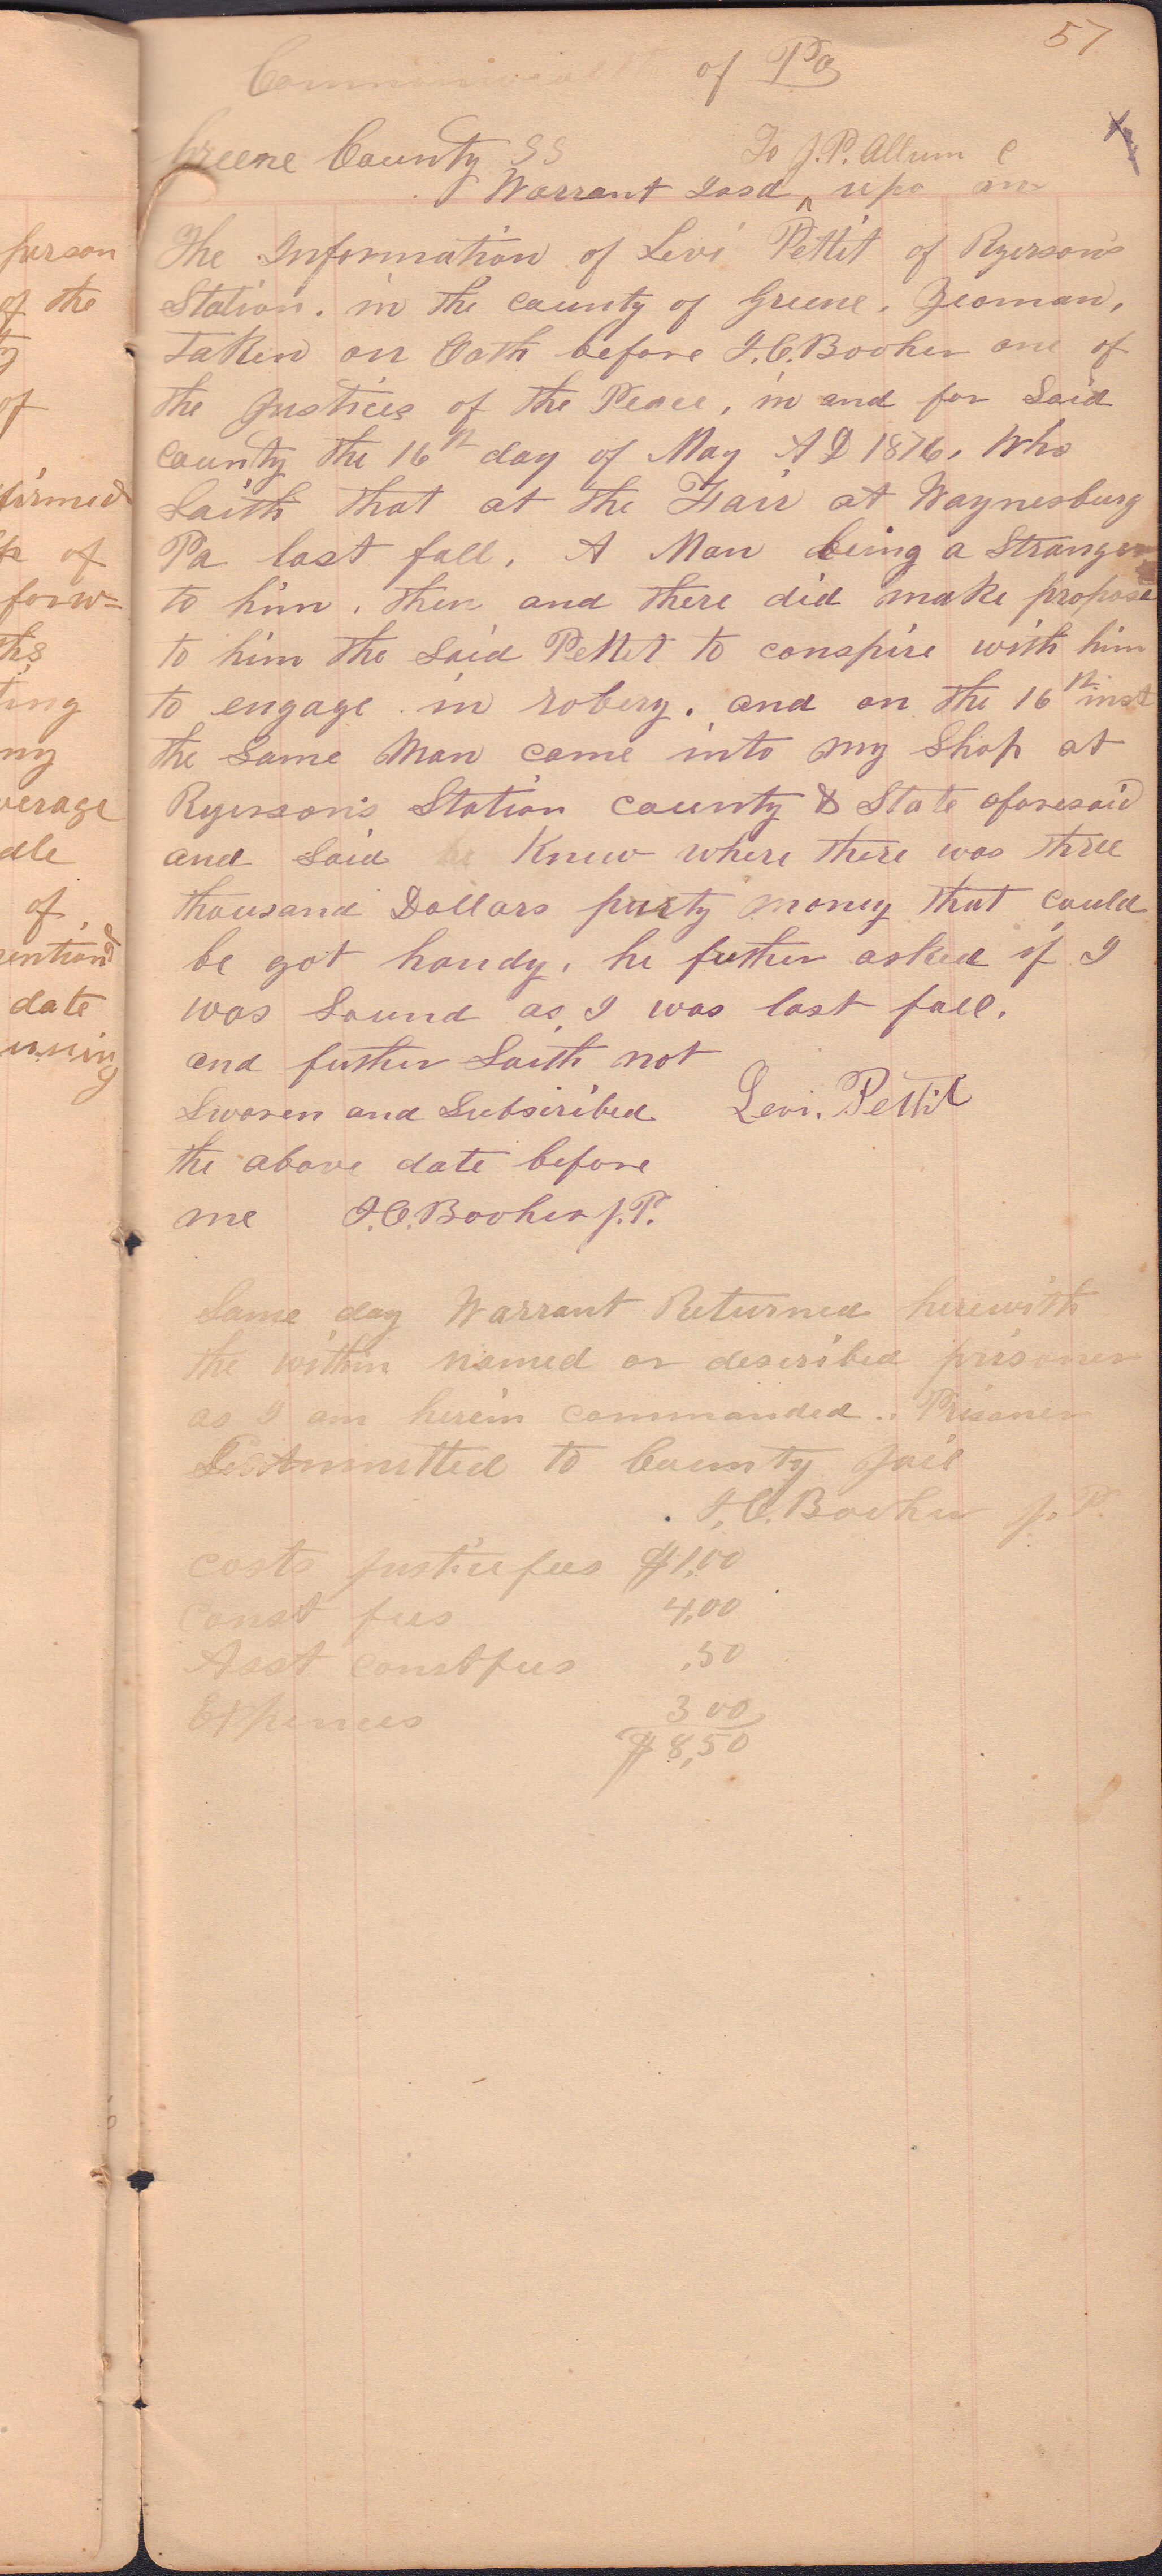 person
of the
of
firmed
of
forw=
ths
ting
my
verage
dle
of
date
57
Commonwealth of Pa
Greene County SS To J.P. Allum C
Warrant Issd ^ upo an
The Information of Levi Pettit of Ryerson's
Station. in the county of Greene. Yeoman,
Taken on Oath before I.C. Booher one of
the Justices of the Peace, in and for Said
County the 16th day of May A D 1876, Who
Saith that at the Fair at Waynesburg
Pa last fall, A Man being a Stranger
to him, then and there did make propose
to him the Said Pettet to conspire with him
to engage in robery. and on the 16th inst
the Same Man came into my Shop at
Ryerson's Station County & State aforesaid
and Said he Knew where there was three
thousand Dollars party money that could
be got handy, he futher asked if I
was Sound as I was last fall.
and futher Saith not
Sworen and Subscribed Levi. Pettit
the above date before
me I.C. Booher J.P.
Same day Warrant Returned herewith
the within named or described prisoner
as I am herein commanded.. Prisoner
Committed to County Jail
I.C. Booher J.P.
costs Justice fees $1,00
Const fees 4,00
Asst const fees ,50
Expences 3 00
$8,50